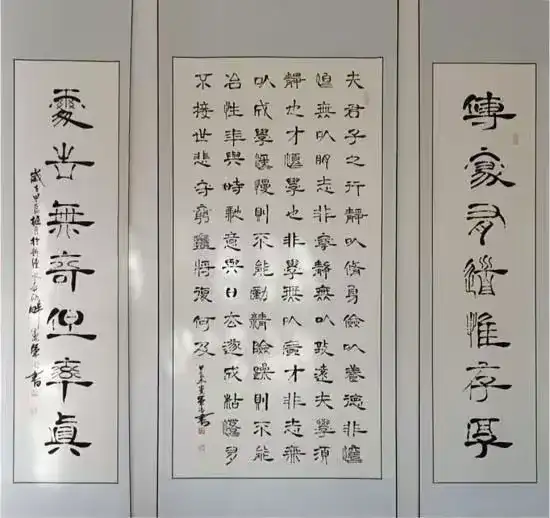 傳家有道惟存厚
夫君子之行靜以脩身儉以養德非澹
泊無以明志非寧靜無以致遠夫學須
靜也才須學也非學無以廣才非志無
以成學慆慢則不能勵精險躁則不能
冶性年與時馳意與日去遂成枯落多
不接世悲守窮廬將復何及
書
處世無奇但率真
歲在甲辰 書